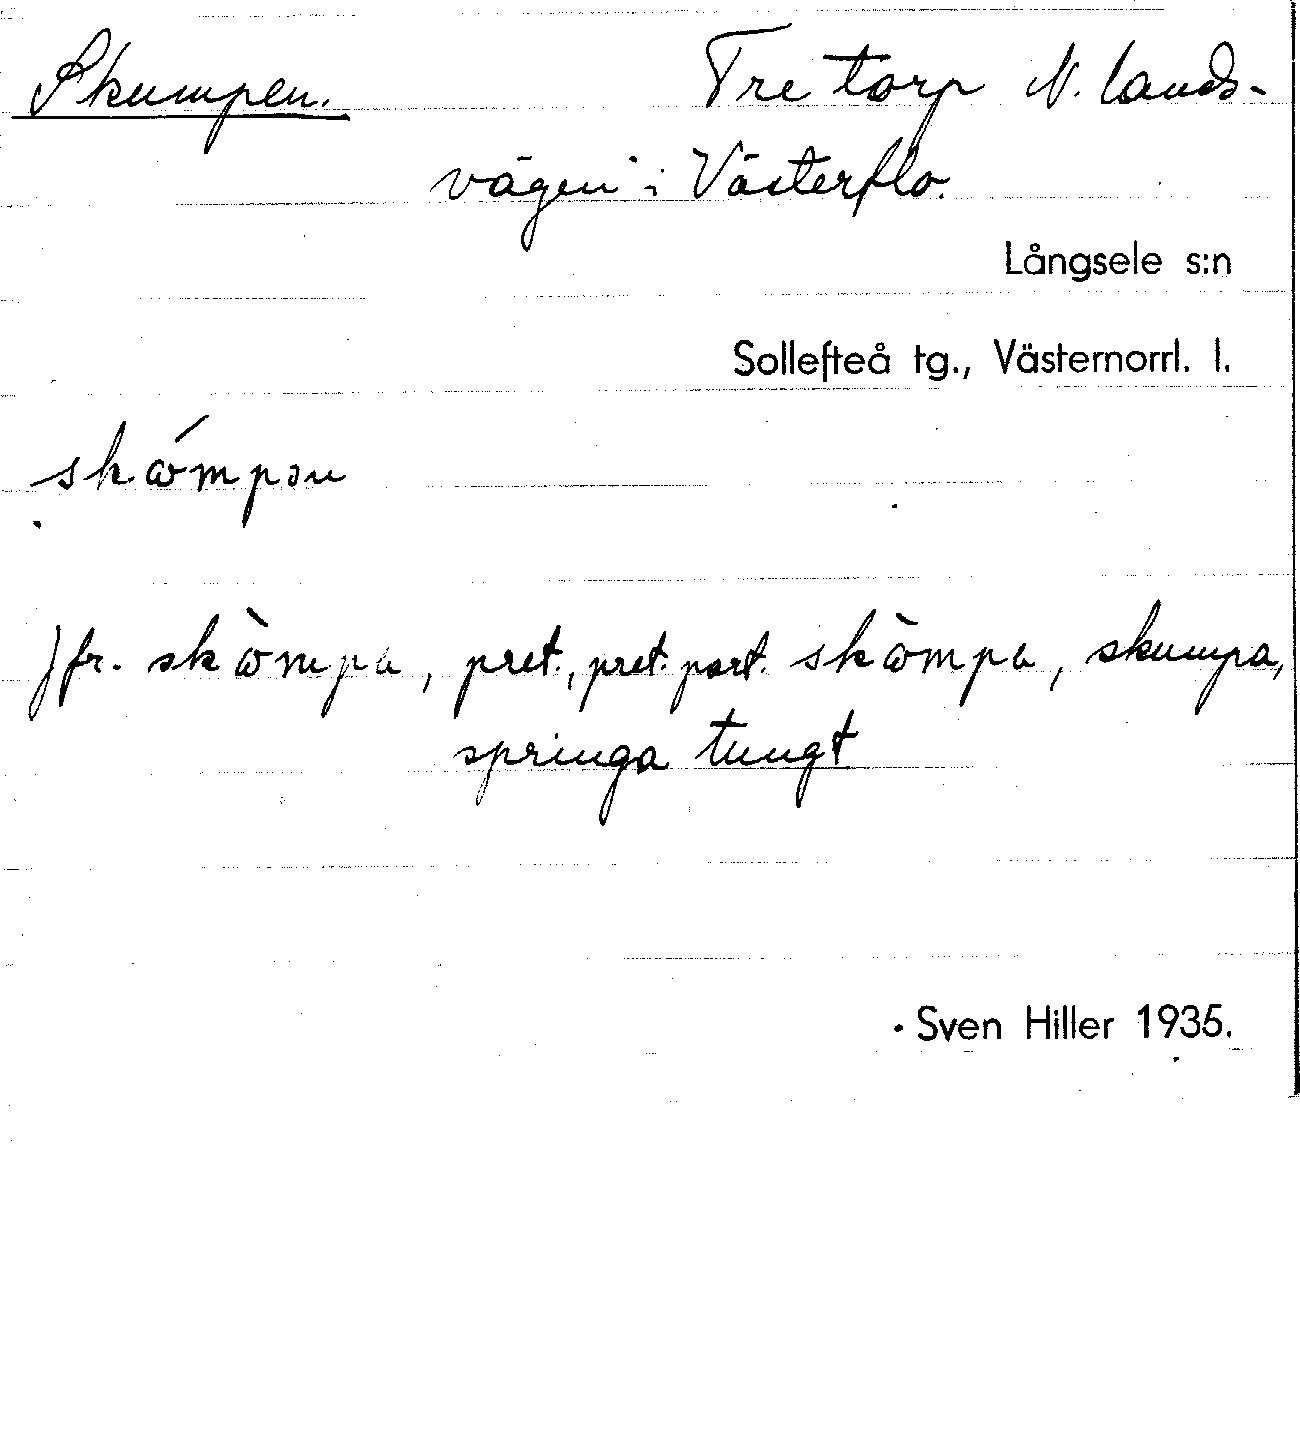 Skumpen. Tre torp N. lands-
vägen i Västerflo.
Långsele s:n
Sollefteå tg., Västernorrl. l.
skѡ́mpən
Jfr. skѡ̀mpa, pret., pret. part. skѡ̀mpa, skumpa,
springa tungt
Sven Hiller 1935.